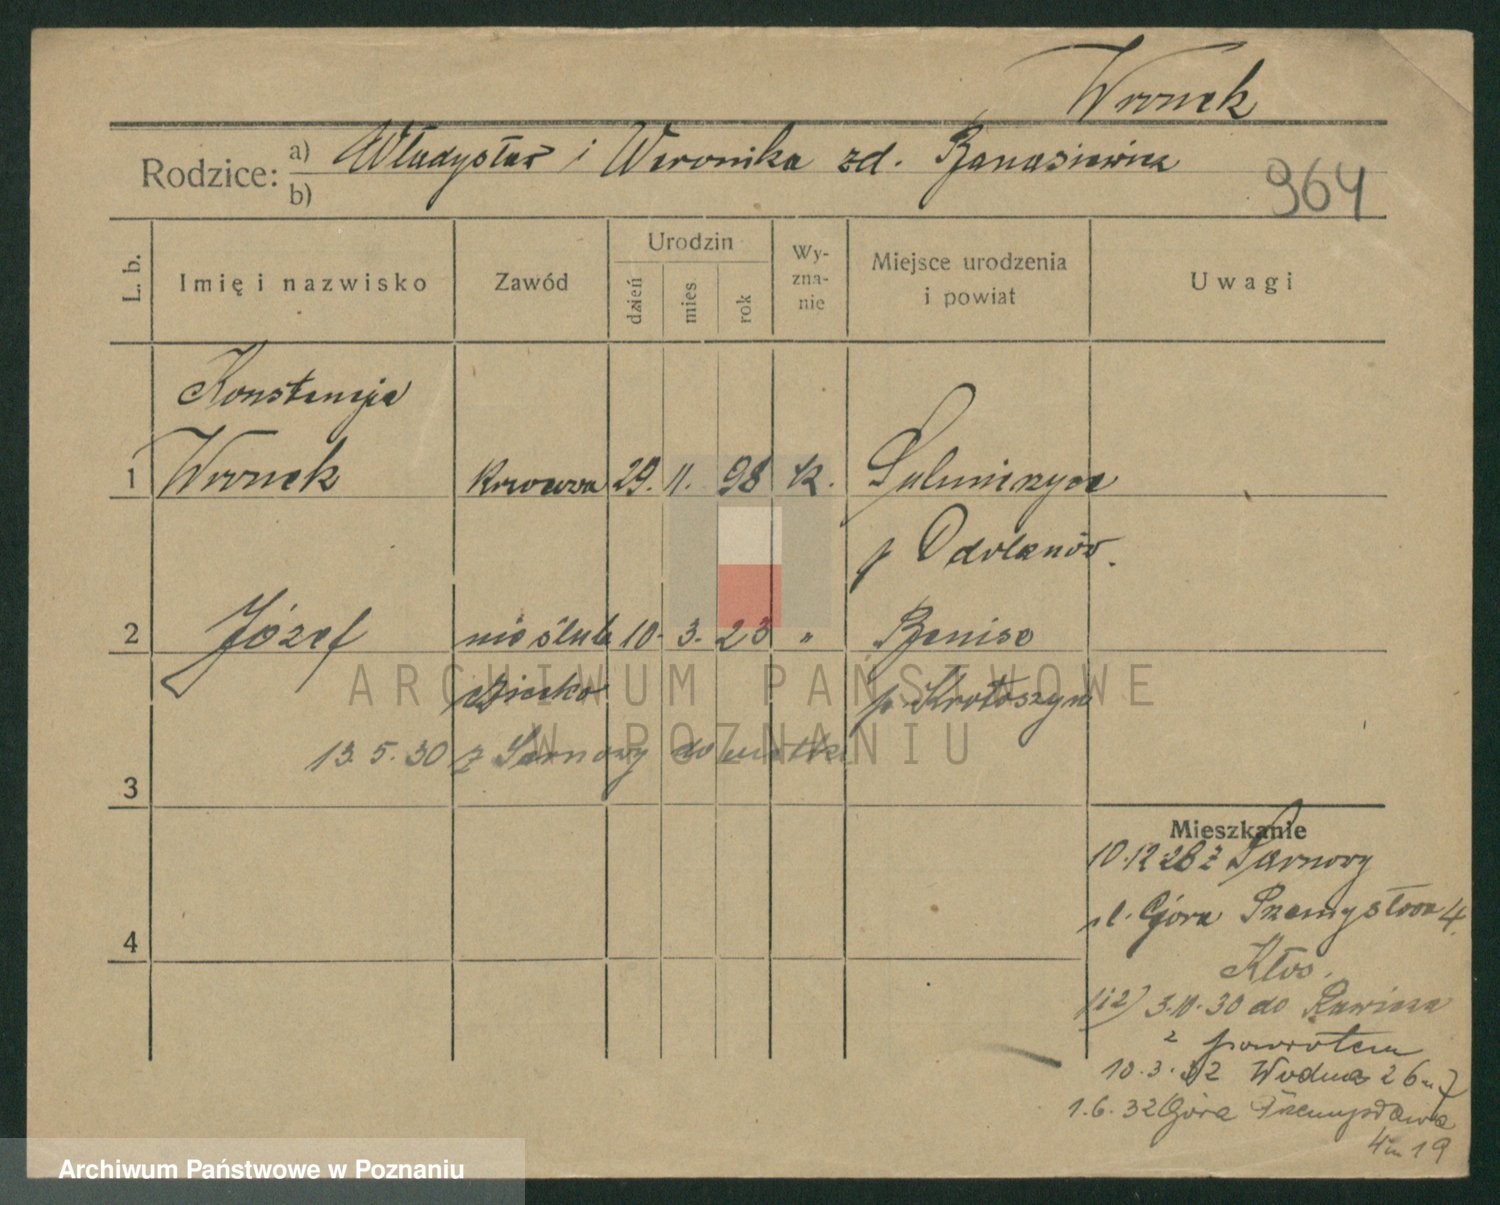 Wronek
Rodzice: a) Władysław i Weronika zd. Banasiewicz
b)
964
L. b.
Imię i nazwisko
Zawód
Urodzin
dzień
mies.
rok
Wyznanie
Miejsce urodzenia i powiat
Uwagi
Konstancja
1 Wronek krawcowa 29. 11. 98 k. Sulmierzyce
p Odolanów.
2 Józef nieślub 10. 3. 23 " Benice
dziecko p. Krotoszyn
13.5.30 z Sarnowy do matki
3
Mieszkanie
10.12 28 z Sarnowy
ul. Góra Przemysława 4.
4
Kłos.
(i2) 3.10.30 do Rawicza
z powrotem
10.3.32 Wodna 26 m 7
1.6.32 Góra Przemysława
4 m 19
ARCHIWUM PAŃSTWOWE
W POZNANIU
Archiwum Państwowe w Poznaniu